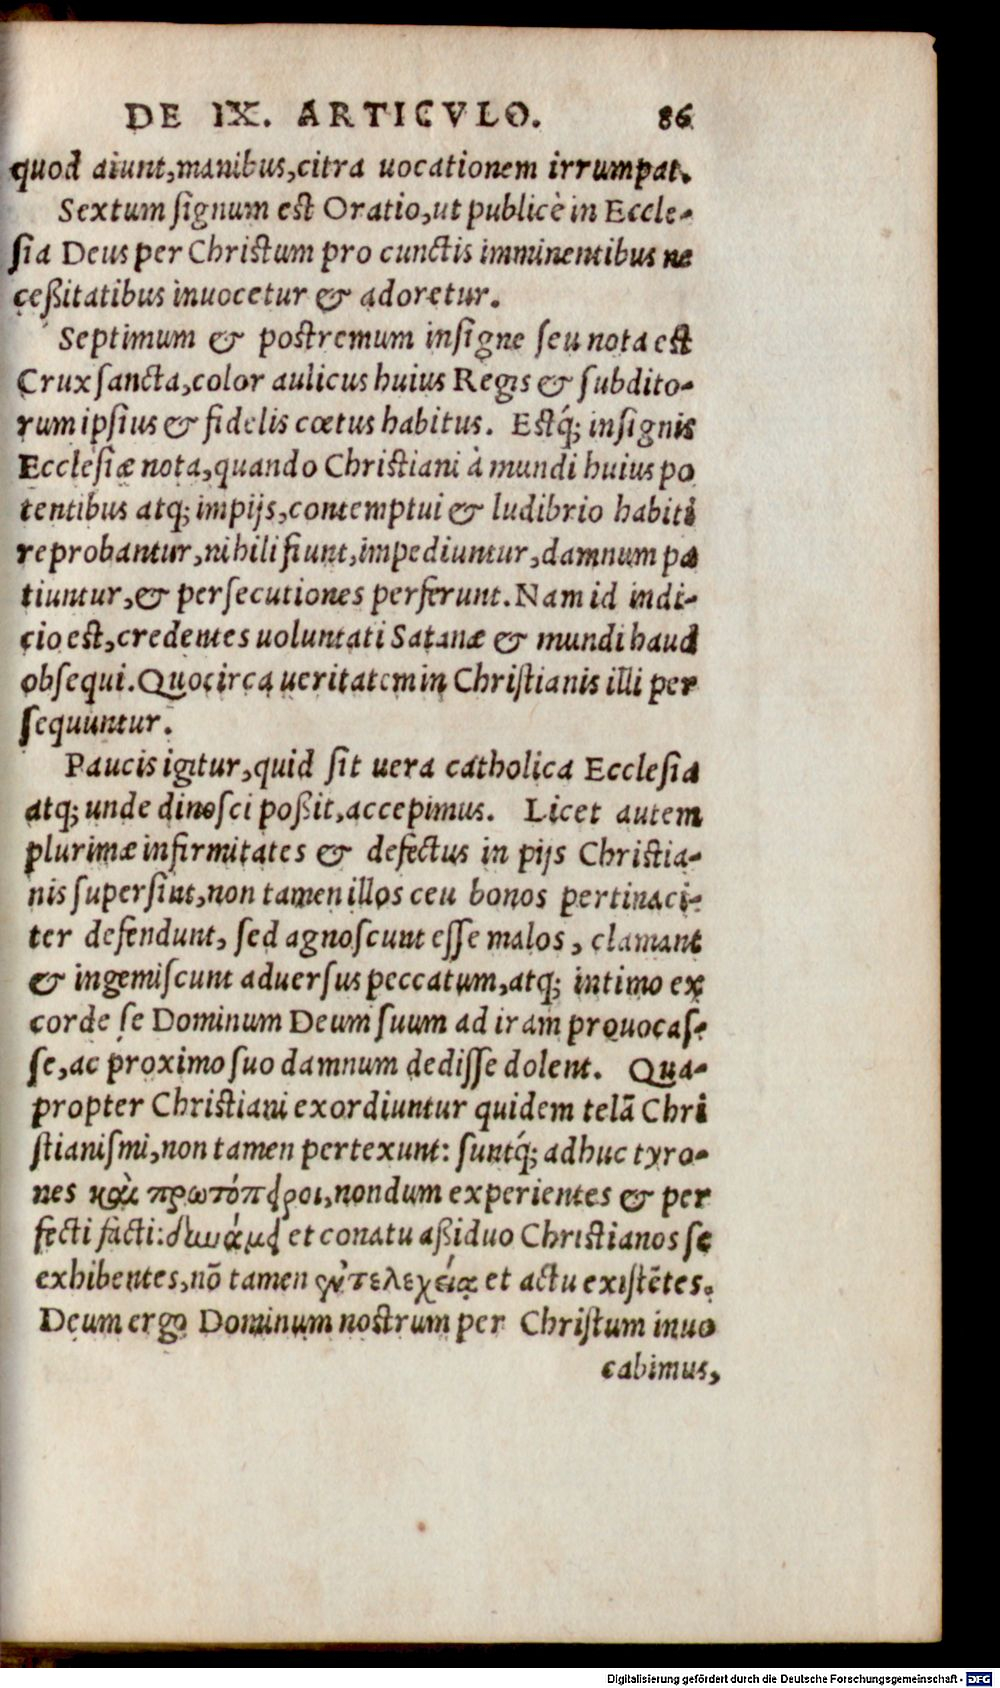 DE IX. ARTICVLO. 86
quod aiunt,manibus,citra uocationem irrumpat.
Sextum ſignum eſt Oratio,ut publicè in Eccle-
ſia Deus per Chriſtum pro cunctis imminentibus ne
ceßitatibus inuocetur & adoretur.
Septimum & poſtremum inſigne ſeu nota eſt
Crux ſancta,color aulicus huius Regis & ſubdito-
rum ipſius & fidelis cœtus habitus. Eſtq́; inſignis
Eccleſiæ nota,quando Chriſtiani à mundi huius po
tentibus atq; impijs,contemptui & ludibrio habiti
reprobantur,nihili fiunt,impediuntur,damnum pa
tiuntur,& perſecutiones perferunt.Nam id indi-
cio eſt,credentes uoluntati Satanæ & mundi haud
obſequi.Quocirca ueritatem in Chriſtianis illi per
ſequuntur.
Paucis igitur,quid ſit uera catholica Eccleſia
atq; unde dinoſci poßit,accepimus. Licet autem
plurimæ infirmitates & defectus in pijs Chriſtia-
nis ſuperſint,non tamen illos ceu bonos pertinaci-
ter defendunt, ſed agnoſcunt eſſe malos, clamant
& ingemiſcunt aduerſus peccatum,atq; intimo ex
corde ſe Dominum Deum ſuum ad iram prouocaſ-
ſe,ac proximo ſuo damnum dediſſe dolent. Qua-
propter Chriſtiani exordiuntur quidem telã Chri
ſtianiſmi,non tamen pertexunt: ſuntq́; adhuc tyro-
nes καὶ πρωτόπειροι,nondum experientes & per
fecti facti: δυνάμει et conatu aßiduo Chriſtianos ſe
exhibentes,nõ tamen ἐντελεχείᾳ et actu exiſtẽtes.
Deum ergo Dominum noſtrum per Chriſtum inuo
cabimus,
Digitalisierung gefördert durch die Deutsche Forschungsgemeinschaft - DFG